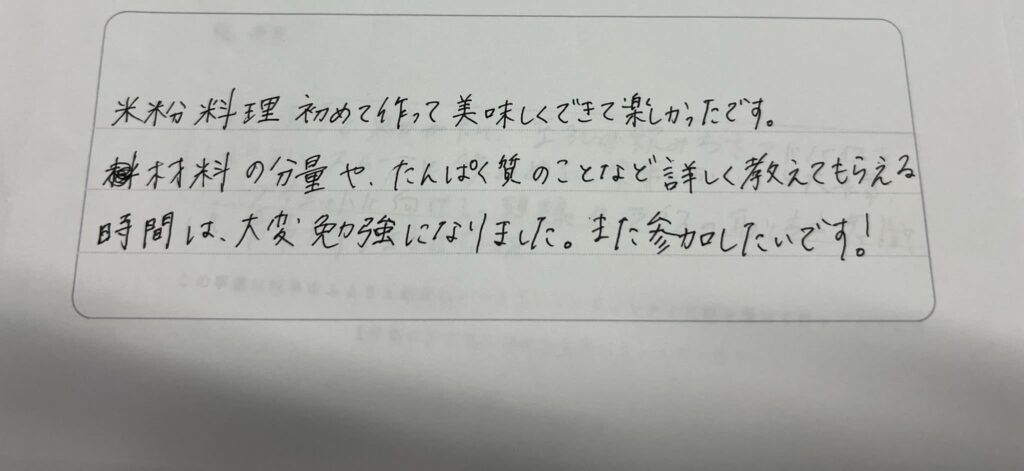 米粉料理初めて作って美味しくできて楽しかったです。
材料の分量や、たんぱく質のことなど詳しく教えてもらえる
時間は、大変勉強になりました。また参加したいです!